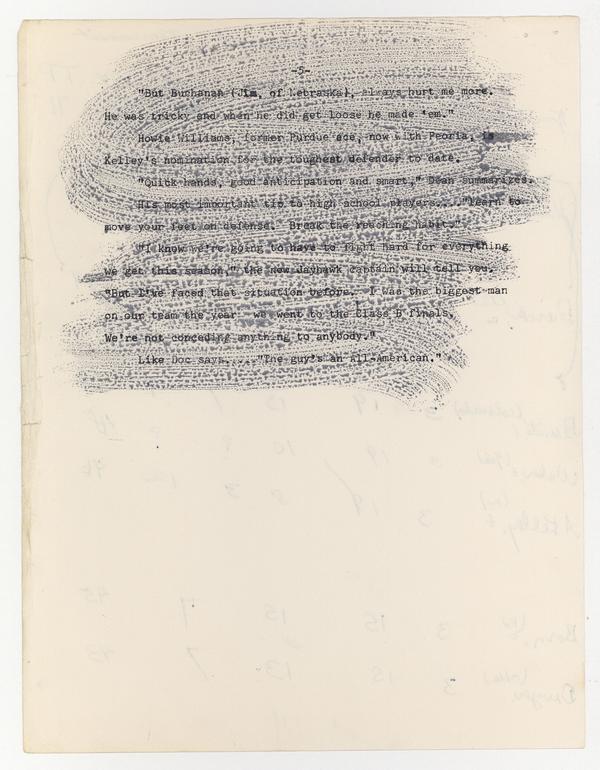 -5-
"But Buchanan (Jim, of Nebraska), always hurt me more.
He was tricky and when he did get loose he made 'em."
Howie Williams, former Purdue ace, now with Peoria, is
Kelley's nomination for the toughest defender to date.
"Quick hands, good anticipation and smart," Dean summarizes.
His most important tip to high school players...."Learn to
move your feet on defense. Break the reaching habit."
"I know we're going to have to fight hard for everything
we get this season," the new Jayhawk captain will tell you.
"But I've faced that situation before. I was the biggest man
on our team the year we went to the Class B finals.
We're not conceding anything to anybody."
Like Doc says....."The guy's an All-American."